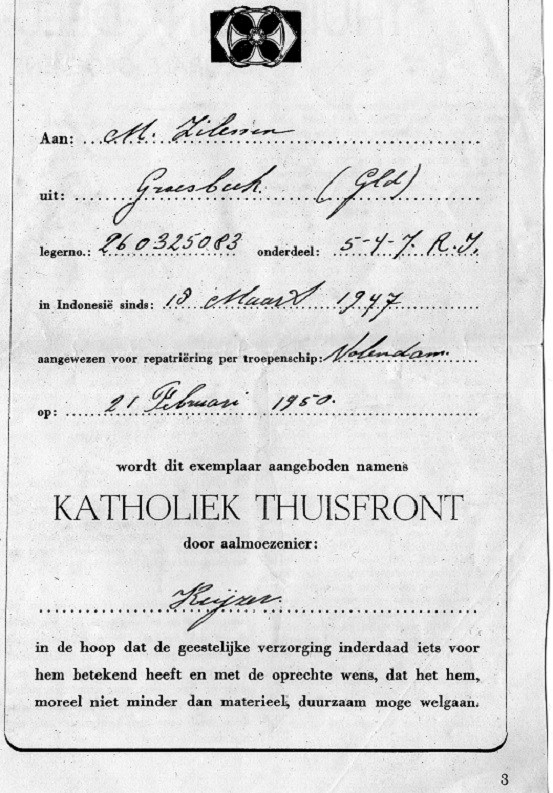 Aan: M. Zilessen
uit: Groesbeek (Gld)
legerno.: 260325083 onderdeel: 5-4-7. R.I.
in Indonesië sinds: 18 Maart 1947
aangewezen voor repatriëring per troepenschip: Volendam.
op: 21 Februari 1950.
wordt dit exemplaar aangeboden namens
KATHOLIEK THUISFRONT
door aalmoezenier:
Keijzer.
in de hoop dat de geestelijke verzorging inderdaad iets voor
hem betekend heeft en met de oprechte wens, dat het hem,
moreel niet minder dan materieel, duurzaam moge welgaan.
3